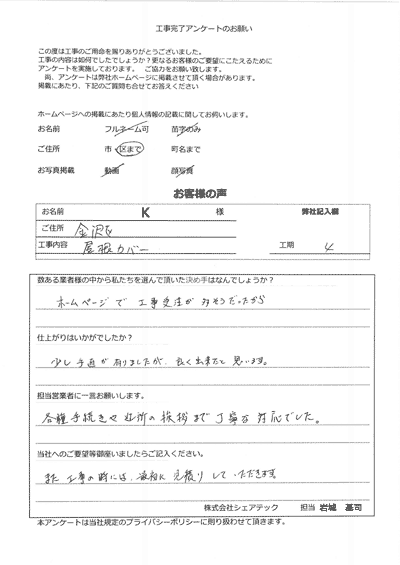 工事完了アンケートのお願い
この度は工事のご用命を賜りありがとうございました。
工事の内容は如何でしたでしょうか?更なるお客様のご要望にこたえるために
アンケートを実施しております。 ご協力をお願い致します。
尚、アンケートは弊社ホームページに掲載させて頂く場合があります。
掲載にあたり、下記のご質問も合せてお答えください
ホームページへの掲載にあたり個人情報の記載に関してお伺いします。
お名前 フルネーム可 苗字のみ
ご住所 市・区まで 町名まで
お写真掲載 動画 顔写真
お客様の声
お名前 K 様 弊社記入欄
ご住所 金沢区
工事内容 屋根カバー 工期 4
数ある業者様の中から私たちを選んで頂いた決め手はなんでしょうか?
ホームページで 工事受注が ありそうだったから
仕上がりはいかがでしたか?
少し手直が有りましたが、良く出来たと思います。
担当営業者に一言お願いします。
各種手続きや近所の挨拶まで丁寧な対応でした。
当社へのご要望等御座いましたらご記入ください。
また工事の時には、最初に見積りしていただきます
株式会社シェアテック 担当 岩城 基司
本アンケートは当社規定のプライバシーポリシーに則り扱わせて頂きます。